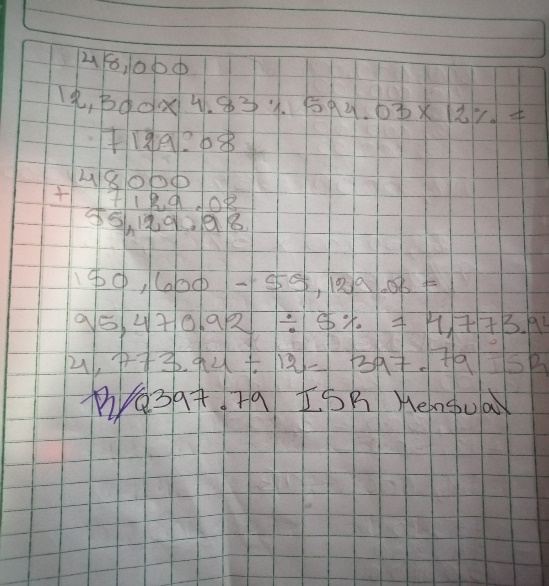 48,000
12,300 x 4.83 % 594.03 x 12% =
7129.08
48000
+ 7129.08
55,129.98
150,600 - 55,129.08 =
95,470.92 ÷ 5% = 4,773.94
4,773.94 ÷ 12 = 397.79 ISR
R/Q397.79 ISR Mensual